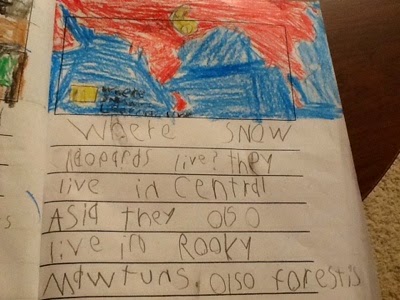 Where snow
leopards live? they
live in central
Asia they olso
live in Rooky
Mawtuns. olso forestis